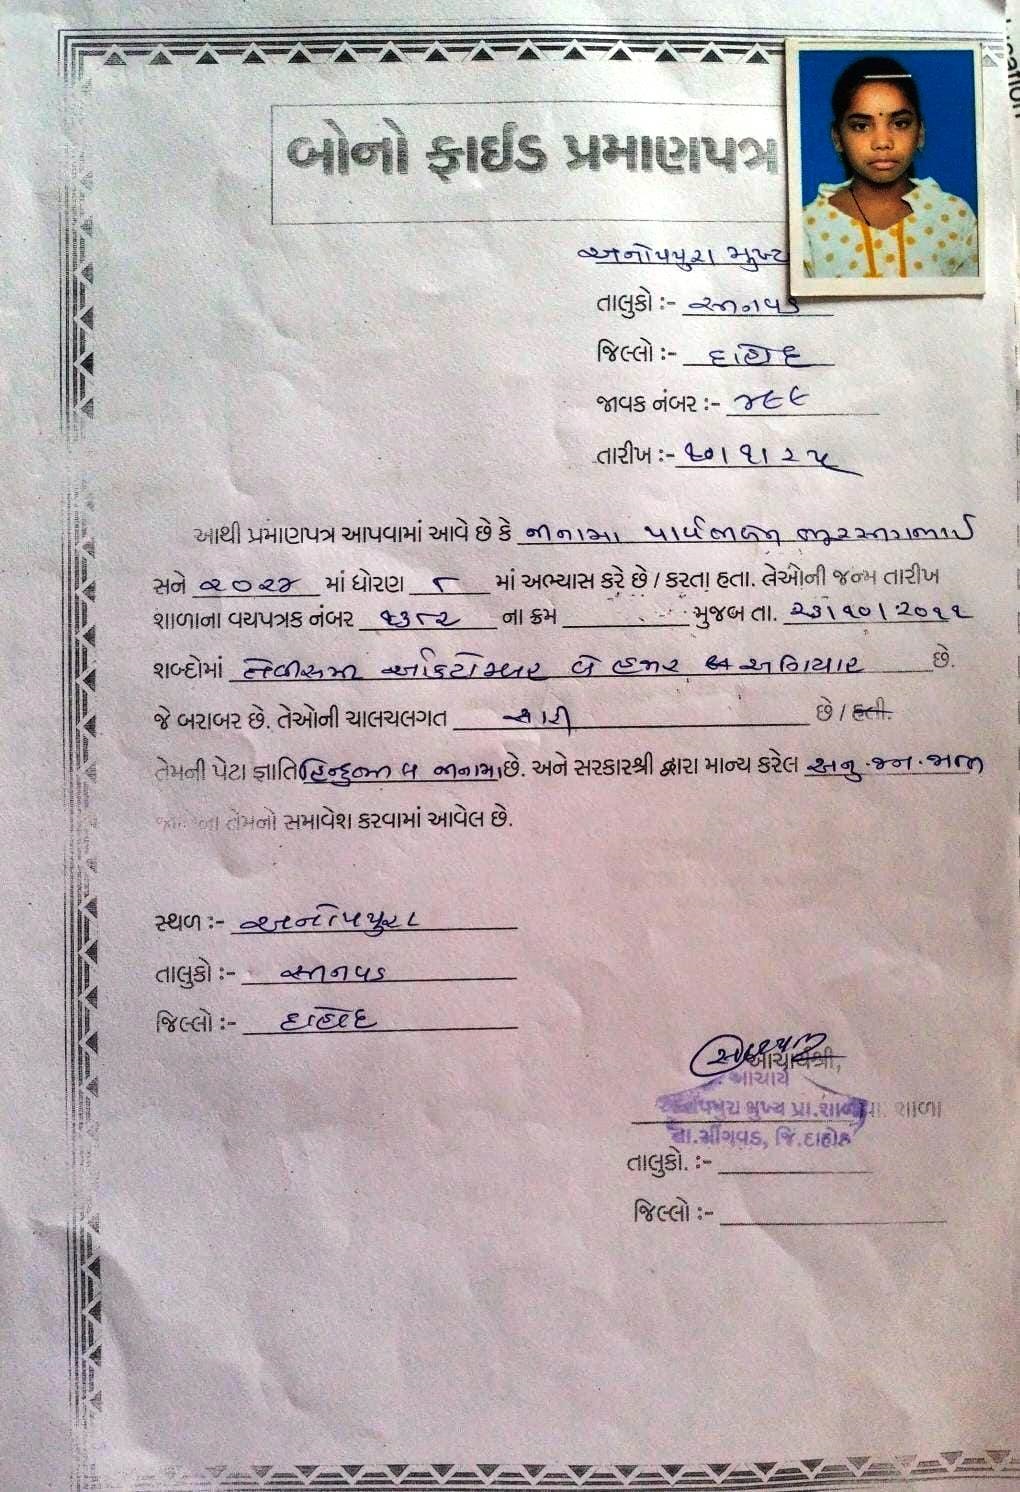 બોનો ફાઈડ પ્રમાણપત્ર
અનોપપુરા મુખ્ય
તાલુકો :-
જિલ્લો :- દાહોદ
જાવક નંબર :- ૪૯૯
તારીખ :- ૧૦।૧।૨૫
આથી પ્રમાણપત્ર આપવામાં આવે છે કે
સને ૨૦૨૪ માં ધોરણ ૮ માં અભ્યાસ કરે છે / કરતા હતા. તેઓની જન્મ તારીખ
શાળાના વયપત્રક નંબર ૧૩૮૨ ના ક્રમ મુજબ તા. ૨૩/૧૦/૨૦૧૧
શબ્દોમાં ત્રેવીસમી ઓક્ટોમ્બર બે હજાર અગિયાર છે.
જે બરાબર છે. તેઓની ચાલચલગત સારી છે / હતી.
તેમની પેટા જ્ઞાતિ છે. અને સરકારશ્રી દ્વારા માન્ય કરેલ અનુ.જન.જાતિ
તેમનો સમાવેશ કરવામાં આવેલ છે.
સ્થળ :- અનોપપુરા
તાલુકો :-
જિલ્લો :- દાહોદ
આચાર્યશ્રી,
આચાર્ય
અનોપપુરા મુખ્ય પ્રા.શાળા શાળા
તા.સીંગવડ, જિ.દાહોદ
તાલુકો. :-
જિલ્લો :-